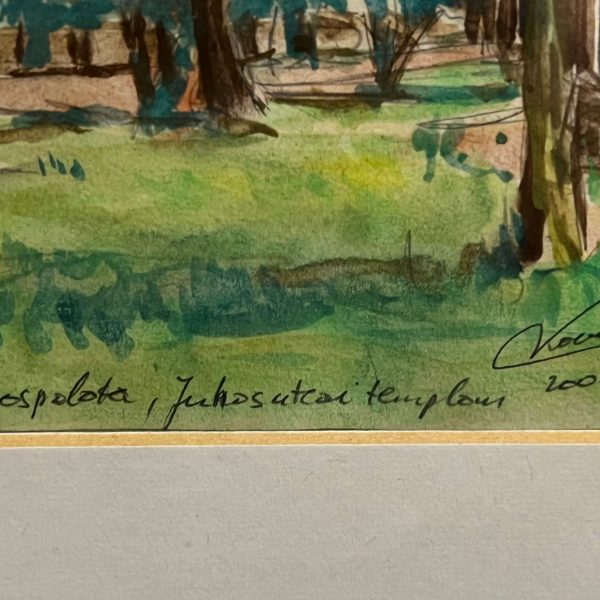 ospalota, Juhos utcai templom
200